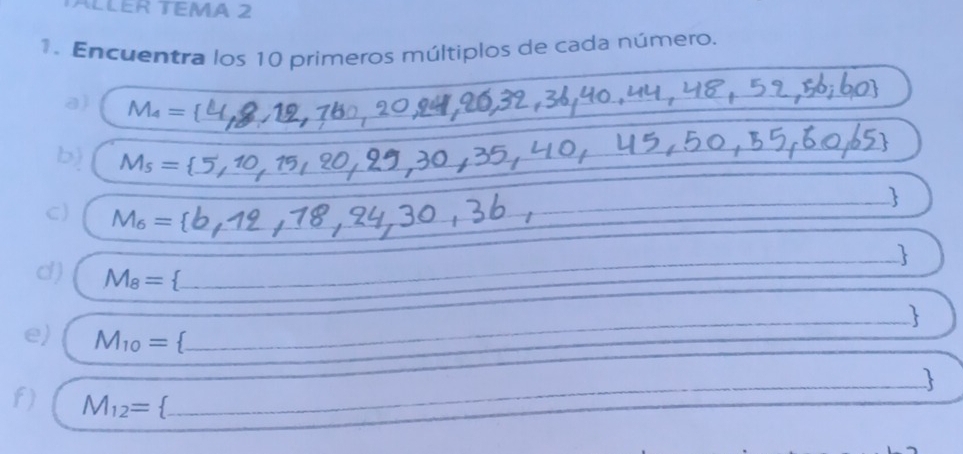 TALLER TEMA 2
1. Encuentra los 10 primeros múltiplos de cada número.
a) M₄ = {4,8,12,160,20,24,26,32,36,40,44,48,52,56,60}
b) M₅ = {5,10,15,20,25,30,35,40,45,50,55,60,65}
c) M₆ = {6,12,18,24,30,36, }
d) M₈ = { }
e) M₁₀ = { }
f) M₁₂= { }